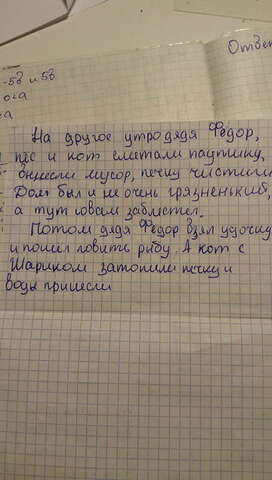 Ответ
-5в и 5в
ога
а
На другое утро дядя Фёдор,
пёс и кот сметали паутину,
выносили мусор, печку чистили.
Дом был и не очень грязненький,
а тут совсем заблестел.
Потом дядя Фёдор взял удочку
и пошёл ловить рыбу. А кот с
Шариком затопили печку и
воды принесли